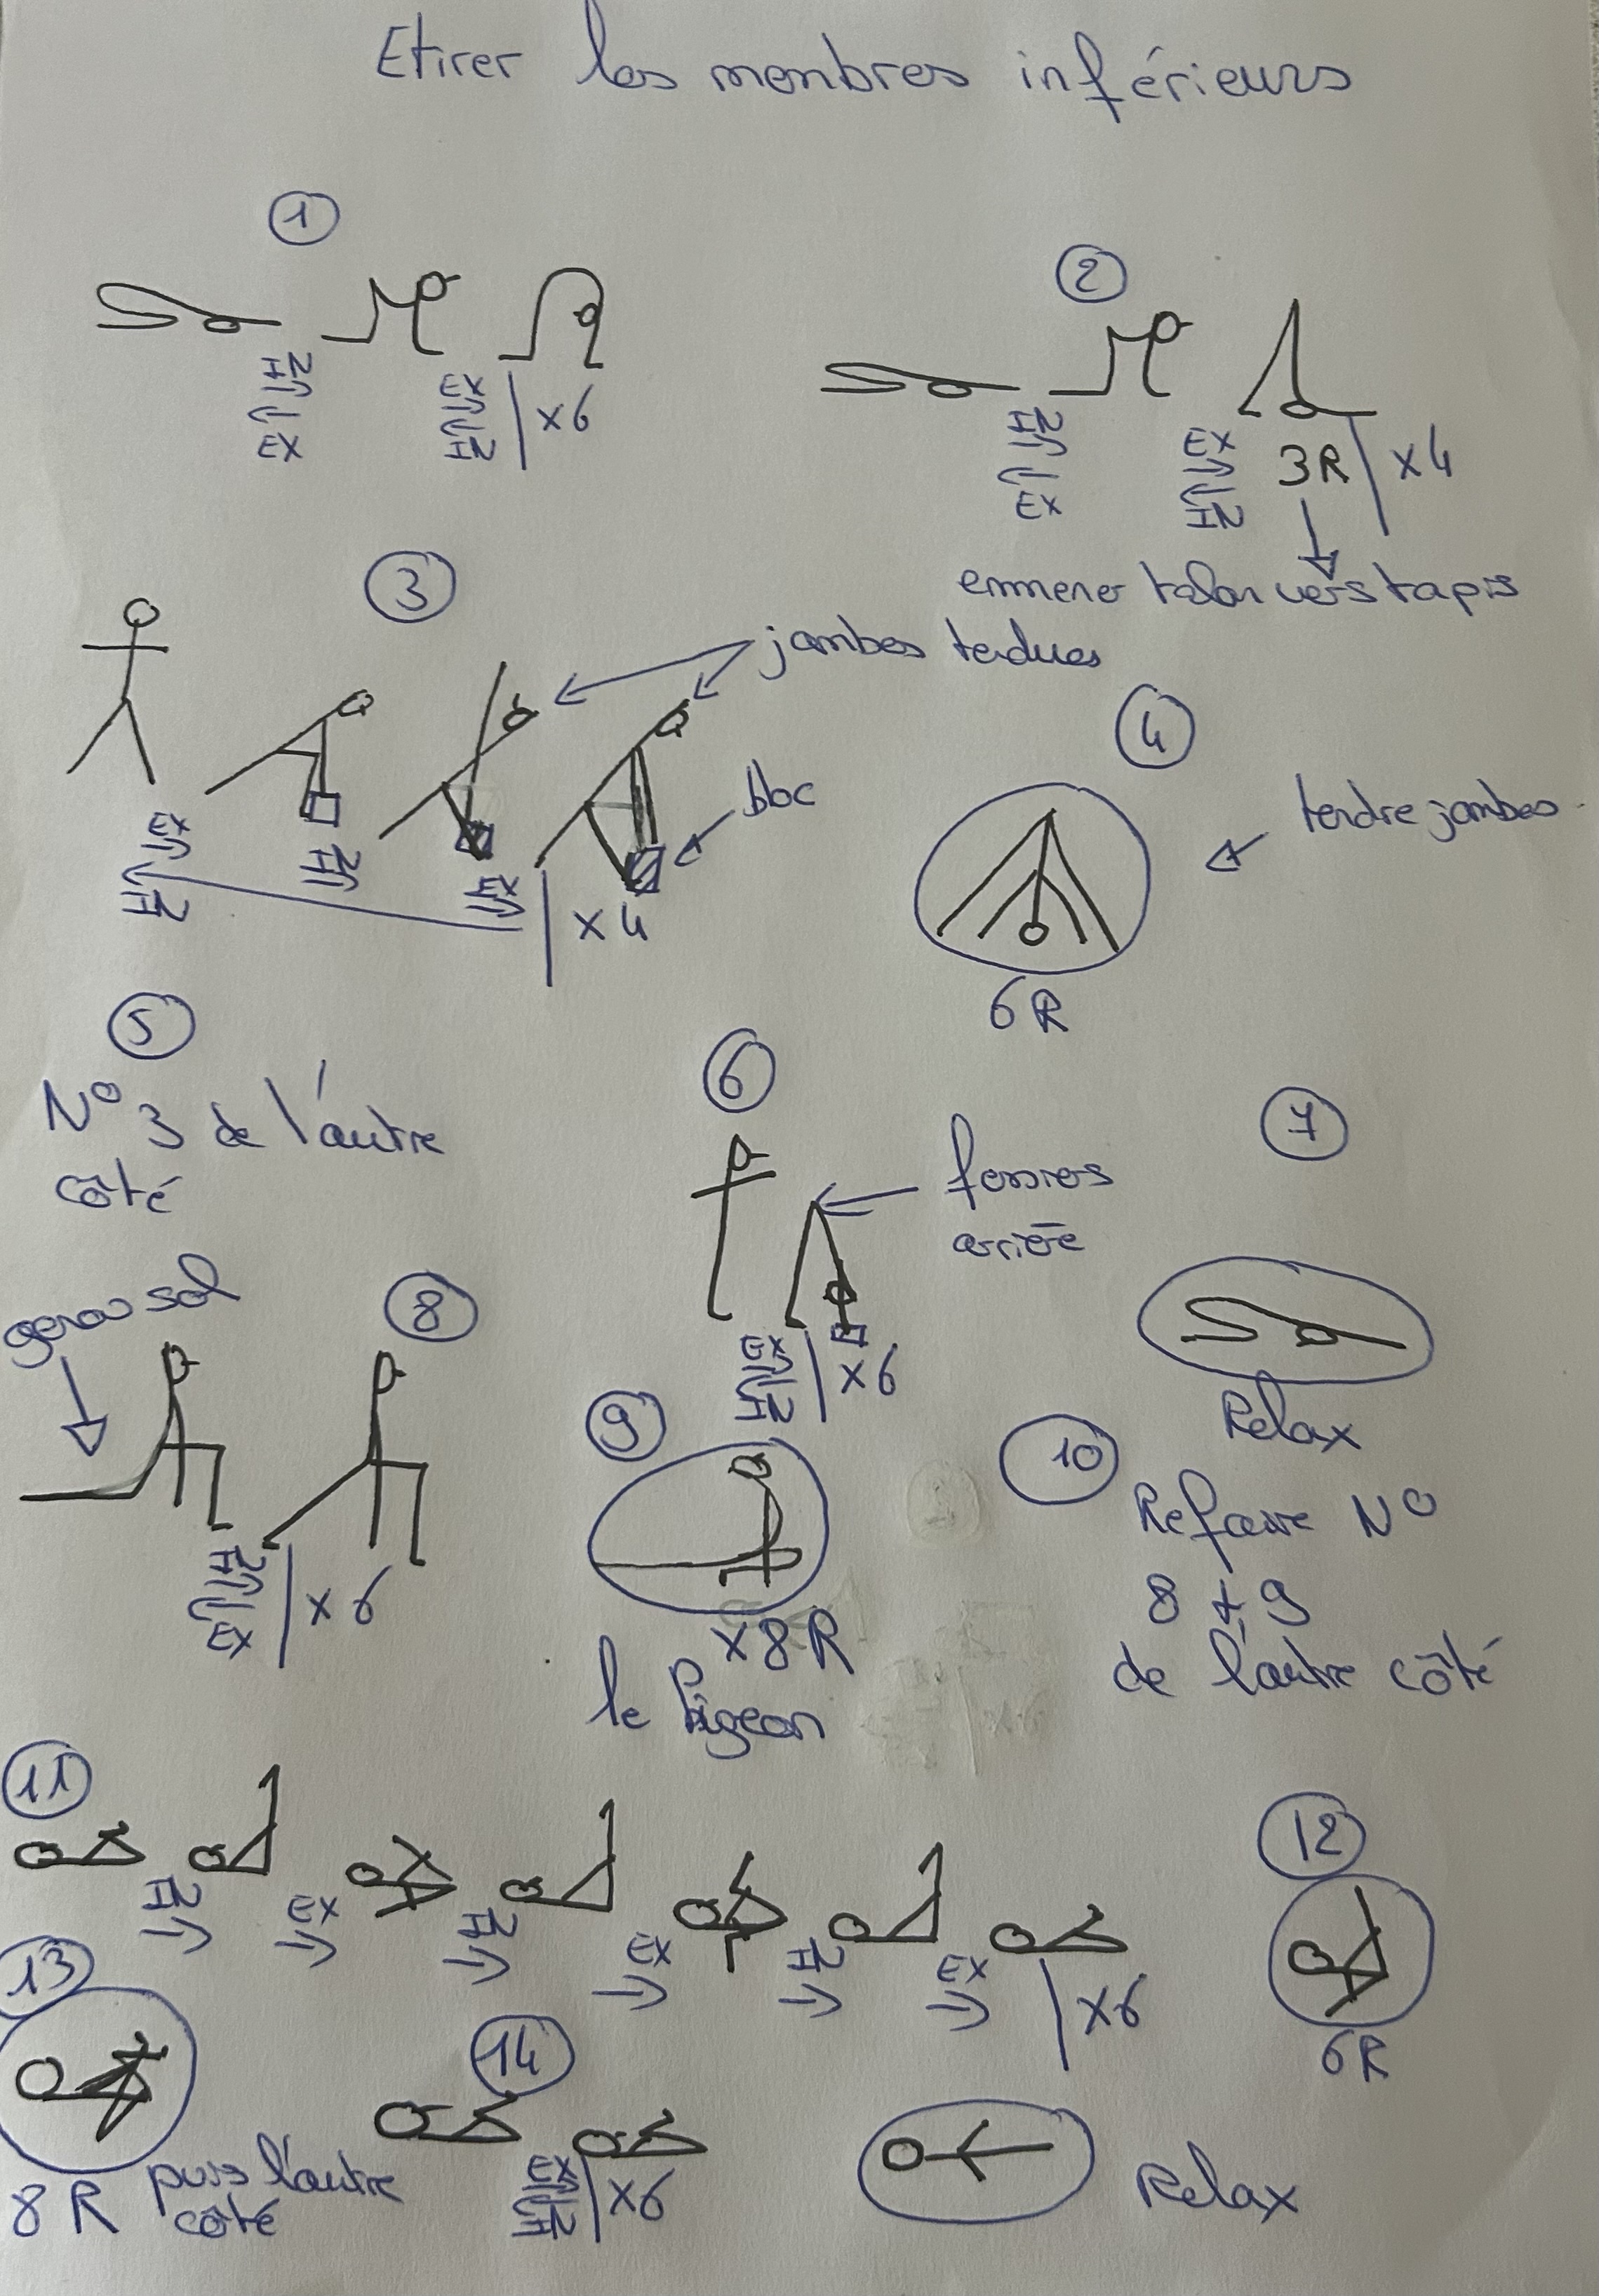 Etirer les membres inférieurs
1
IN
EX
EX
IN
x6
2
IN
EX
EX
IN
3R
x4
emmener talon vers tapis
3
jambes tendues
bloc
EX
IN
IN
EX
x4
4
tendre jambes
6R
5
N° 3 de l'autre
côté
6
fesses
arrière
EX
IN
x6
7
Relax
8
genou sol
IN
EX
x6
9
x8R
le Pigeon
10
Refaire N°
8 + 9
de l'autre côté
11
IN
EX
IN
EX
IN
EX
x6
12
6R
13
8R puis l'autre
côté
14
EX
IN
x6
Relax